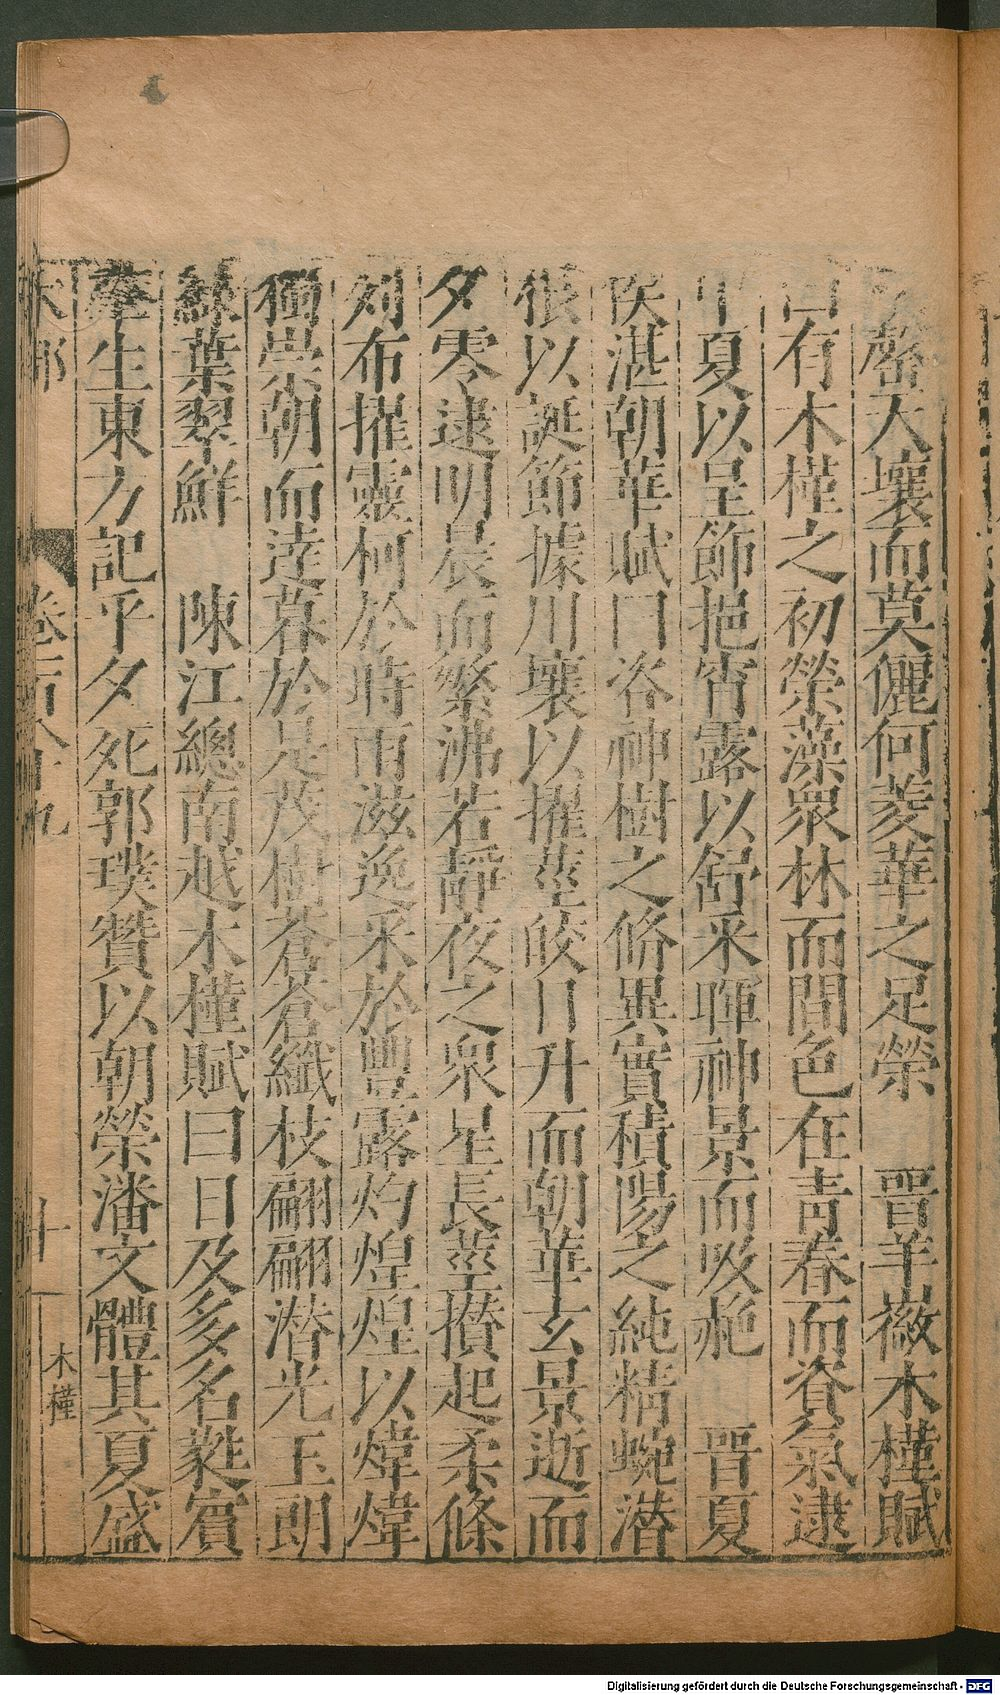 罄天壤而莫儷何菱華之足榮　晉羊徽木槿賦
曰有木槿之初榮藻眾林而間色在青春而資氣逮
中夏以呈飾挹宵露以舒采暉神景而吸赩　晉夏
侯湛朝華賦曰咨神樹之脩異實積陽之純精蜿潛
根以誕節據川壤以擢莖皎日升而朝華玄景逝而
夕零逮明晨而繁沸若靜夜之眾星長莖攢起柔條
列布擢靈柯於時雨滋逸采於豐露灼煌煌以煒煒
獨崇朝而達暮於是茂樹蒼蒼纖枝翩翩潛光玉朗
綠葉翠鮮　陳江總南越木槿賦曰日及多名蕤賓
肇生東方記乎夕死郭璞贊以朝榮潘文體其夏盛
木部　卷一百八十九　十　木槿
Digitalisierung gefördert durch die Deutsche Forschungsgemeinschaft - DFG